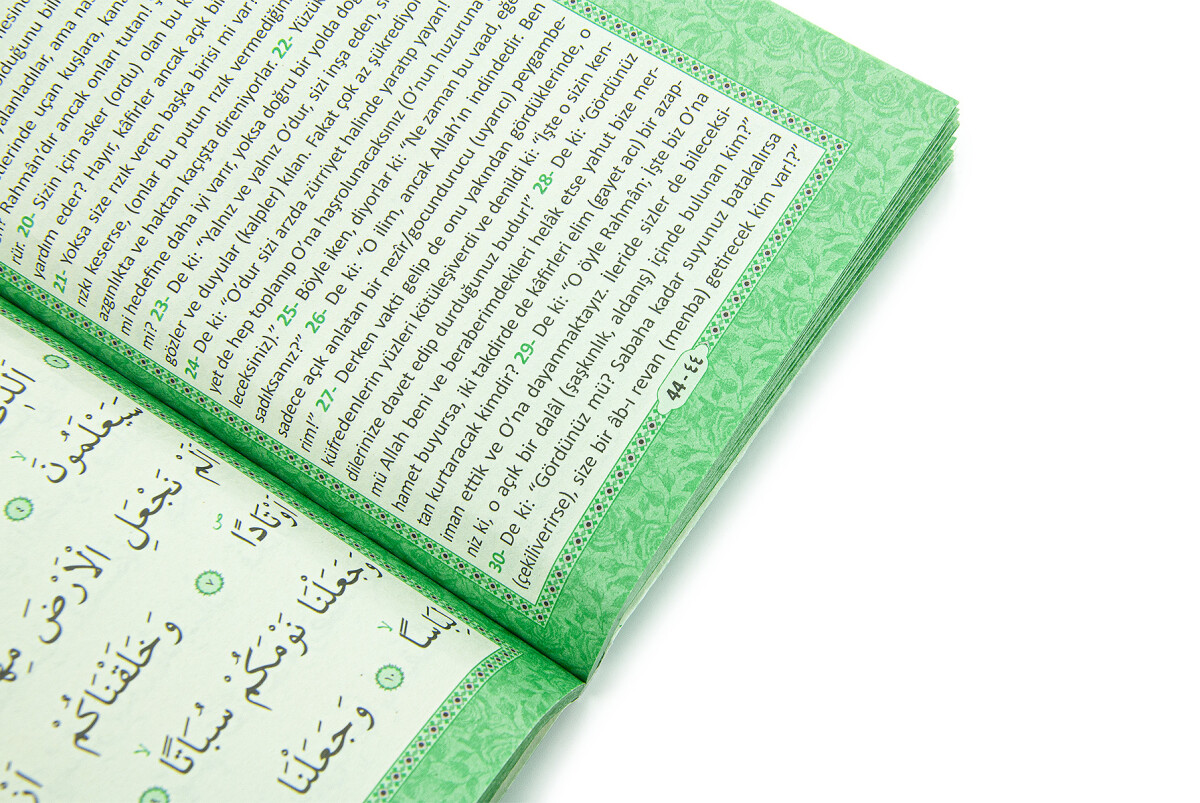 erlerinde uçan kuşlara, kana
Rahmân'dır ancak onları tutan! Ç
rür. 20- Sizin için asker (ordu) olan bu k
yardım eder? Hayır, kâfirler ancak açık bir
21- Yoksa size rızık veren başka birisi mi var?
rızkı keserse, (onlar bu putun rızık vermediğin
azgınlıkta ve haktan kaçışta direniyorlar. 22- Yüzük
mi hedefine daha iyi varır, yoksa doğru bir yolda doğ
mi? 23- De ki: “Yalnız ve yalnız O’dur, sizi inşa eden, si
gözler ve duyular (kalpler) kılan. Fakat çok az şükrediyor
24- De ki: “O’dur sizi arzda zürriyet halinde yaratıp yayan!
yet de hep toplanıp O’na haşrolunacaksınız (O’nun huzuruna
leceksiniz).” 25- Böyle iken, diyorlar ki: “Ne zaman bu vaad, eğe
sadıksanız?” 26- De ki: “O ilim, ancak Allah’ın indindedir. Ben
sadece açık anlatan bir nezîr/gocundurucu (uyarıcı) peygambe-
rim!” 27- Derken vakti gelip de onu yakından gördüklerinde, o
küfredenlerin yüzleri kötüleşiverdi ve denildi ki: “İşte o sizin ken-
dilerinize davet edip durduğunuz budur!” 28- De ki: “Gördünüz
mü Allah beni ve beraberimdekileri helâk etse yahut bize mer-
hamet buyursa, iki takdirde de kâfirleri elim (gayet acı) bir azap-
tan kurtaracak kimdir? 29- De ki: “O öyle Rahmân; işte biz O’na
iman ettik ve O’na dayanmaktayız. İleride sizler de bileceksi-
niz ki, o açık bir dalâl (şaşkınlık, aldanış) içinde bulunan kim?”
30- De ki: “Gördünüz mü? Sabaha kadar suyunuz batakalırsa
(çekiliverirse), size bir âb-ı revan (menba) getirecek kim var!?”
44 - ٤٤
سَيَعْلَمُونَ ٤
اَلَمْ نَجْعَلِ الْاَرْضَ
وَخَلَقْنَاكُمْ ٧
وَجَعَلْنَا نَوْمَكُمْ سُبَاتًا
لِبَاسًا ١٠ وَجَعَلْنَا